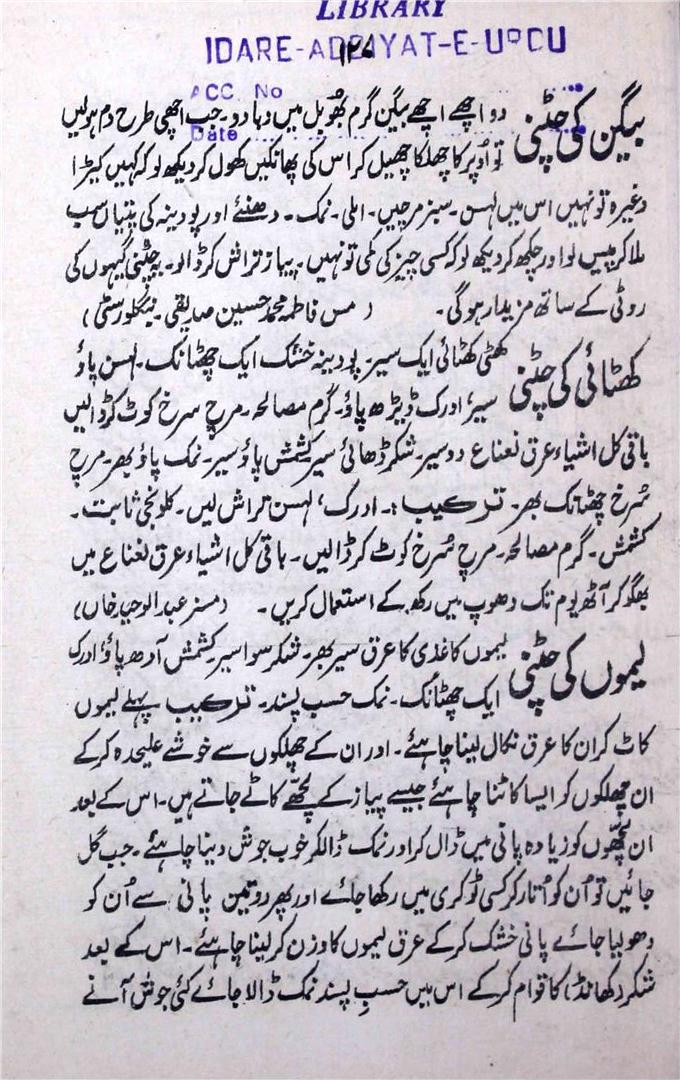 LIBRARY
IDARE-ADBIYAT-E-URDU
ACC. No
Date
بیگن کی چٹنی
دو اچھے اچھے بیگن گرم بھوبل میں دبا دو۔ جب اچھی طرح دم ہولیں
تو اُوپر کا چھلکا چھیل کر اس کی پھانکیں کھول کر دیکھ لو کہ کہیں کیڑا
وغیرہ تو نہیں اس میں لہسن۔ سبز مرچیں۔ املی۔ نمک۔ دھنئے اور پودینہ کی پتیاں سب
ملا کر پیس لو اور چکھ کر دیکھ لو کہ کسی چیز کی کمی تو نہیں۔ پیاز تراش کر ڈالو۔ یہ چٹنی گیہوں کی
روٹی کے ساتھ مزیدار ہوگی۔ (مس فاطمہ محمد حسین صدیقی۔ بنگلورسٹی)
کھٹائی کی چٹنی
کھٹی کھٹائی ایک سیر۔ پودینہ خشک ایک چھٹانک۔ لہسن پاؤ
سیر، ادرک ڈیڑھ پاؤ۔ گرم مصالحہ۔ مرچ سرخ کوٹ کر ڈالیں
باقی کل اشیاء عرق نعناع دو سیر۔ شکر ڈھائی سیر کشمش پاؤ سیر۔ نمک پاؤ بھر۔ مرچ
سُرخ چھٹانک بھر۔ ترکیب:۔ ادرک، لہسن تراش لیں۔ کلونجی ثابت۔
کشمش۔ گرم مصالحہ۔ مرچ سُرخ کوٹ کر ڈالیں۔ باقی کل اشیاء عرق نعناع میں
بھگو کر آٹھ یوم تک دھوپ میں رکھ کے استعمال کریں۔ (مسز عبدالوحید خاں)
لیموں کی چٹنی
لیموں کاغذی کا عرق سیر بھر۔ شکر سوا سیر کشمش آدھ پاؤ، ادرک
ایک چھٹانک۔ نمک حسب پسند۔ ترکیب پہلے لیموں
کاٹ کر ان کا عرق نکال لینا چاہئے۔ اور ان کے چھلکوں سے خوشے علیحدہ کرکے
ان چھلکوں کو ایسا کاٹنا چاہئے جیسے پیاز کے لچھے کاٹے جاتے ہیں۔ اس کے بعد
ان لچھوں کو زیادہ پانی میں ڈال کر اور نمک ڈالکر خوب جوش دینا چاہئے۔ جب گل
جائیں تو اُن کو اُتار کر کسی ٹوکری میں رکھا جائے اور پھر دو تین پانی سے اُن کو
دھو لیا جائے پانی خشک کرکے عرق لیموں کا وزن کر لینا چاہئے۔ اس کے بعد
شکر (کھانڈ) کا قوام کرکے اس میں حسبِ پسند نمک ڈالا جائے کئی جوش آنے